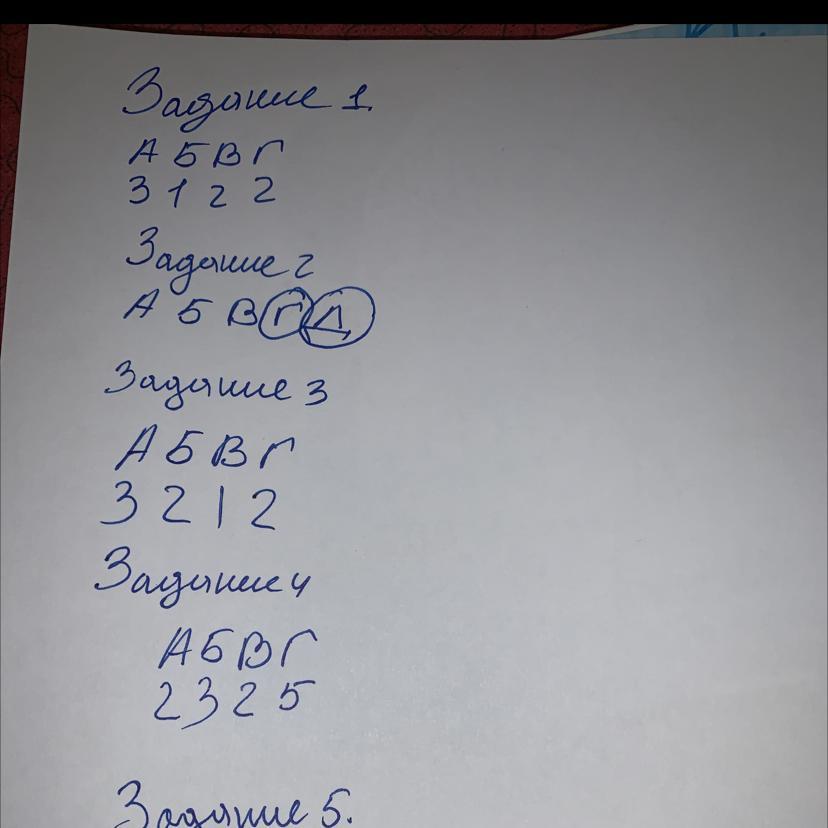 Задание 1.
А Б В Г
3 1 2 2
Задание 2
А Б В Г Д
Задание 3
А Б В Г
3 2 1 2
Задание 4
А Б В Г
2 3 2 5
Задание 5.